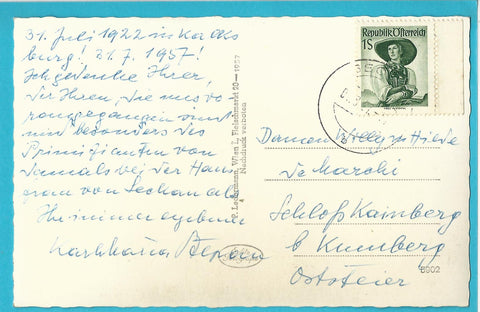 31. Juli 1922 in
burg! 31.7. 1957!
Ich gedenke Ihrer,
der Ihren, die uns vo-
rangegangen sind
und besonders des
Primizianten von
damals bei der
von
Ihr immer ergebener
P. Ledermann, Wien I., Fleischmarkt 20 — 1957
Nachdruck verboten
4
Republik Österreich
1S
Damen Willy u. Hilde
de Marchi
Schloß Kainberg
b Kumberg
Oststeier
8902